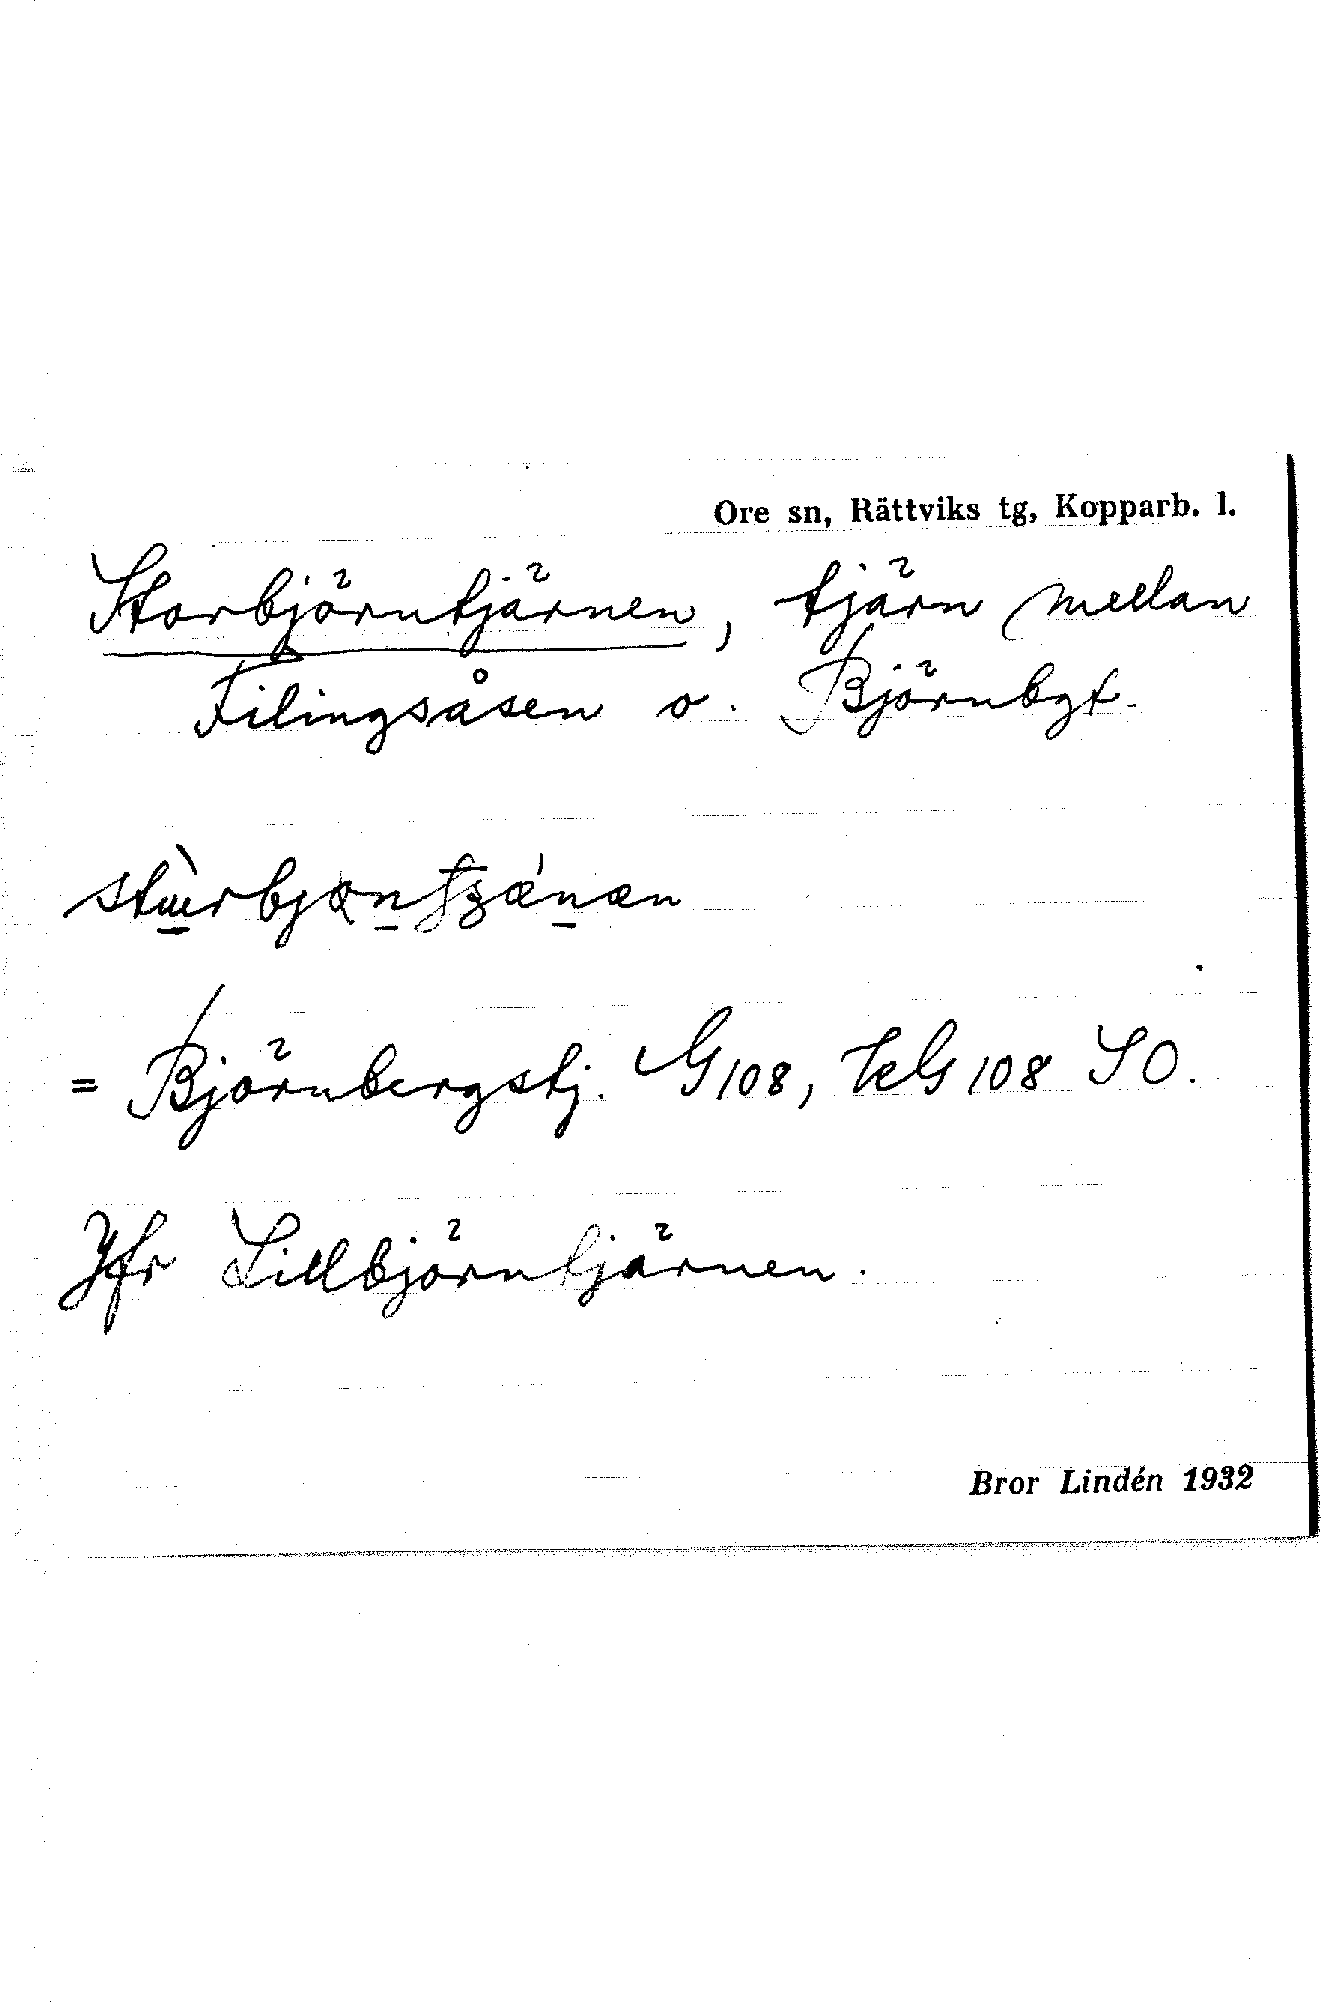 Ore sn, Rättviks tg, Kopparb. l.
Storbjörntjärnen, tjärn mellan
Filingsåsen o. Björnbgt.
= Björnbergstj. G 108, KlG 108 SO.
Jfr Lillbjörntjärnen.
Bror Lindén 1932